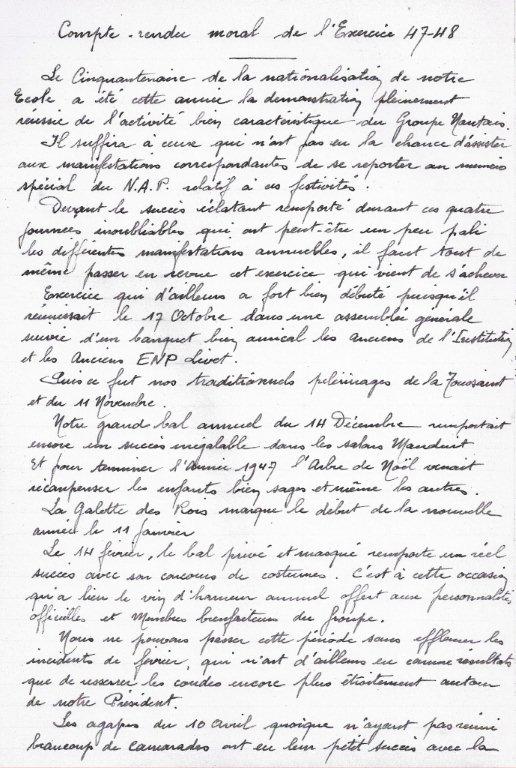 Compte-rendu moral de l'Exercice 47-48
Le Cinquantenaire de la nationalisation de notre
Ecole a été cette année la demonstration pleinement
réussie de l'activité bien caractéristique du Groupe Nantais.
Il suffira à ceux qui n'ont pas eu la chance d'assister
aux manifestations correspondantes de se reporter au numéro
spécial du N.A.P. relatif à ces festivités.
Devant le succès éclatant remporté durant ces quatre
journées inoubliables qui ont peut-être un peu pali
les différentes manifestations annuelles, il faut tout de
même passer en revue cet exercice qui vient de s'achever
Exercice qui d'ailleurs a fort bien débuté puisqu'il
réunissait le 17 Octobre dans une assemblée générale
suivie d'un banquet bien amical les anciens de l'Institution
et les Anciens ENP Livet.
Puis ce fut nos traditionnels pèlerinages de la Toussaint
et du 11 Novembre.
Notre grand bal annuel du 14 Décembre remportait
encore un succès inégalable dans les salons Mauduit
Et pour terminer l'année 1947 l'Arbre de Noël venait
récompenser les enfants bien sages et même les autres.
La Galette des Rois marque le début de la nouvelle
année le 11 Janvier
Le 14 février, le bal privé et masqué remporte un réel
succès avec son concours de costumes. C'est à cette occasion
qu'a lieu le vin d'honneur annuel offert aux personnalités
officielles et Membres bienfaiteurs du Groupe.
Nous ne pouvons passer cette période sans effleurer les
incidents de février, qui n'ont d'ailleurs eu comme résultats
que de resserrer les coudes encore plus étroitement autour
de notre Président.
Les agapes du 10 avril quoique n'ayant pas réuni
beaucoup de camarades ont eu leur petit succès avec la